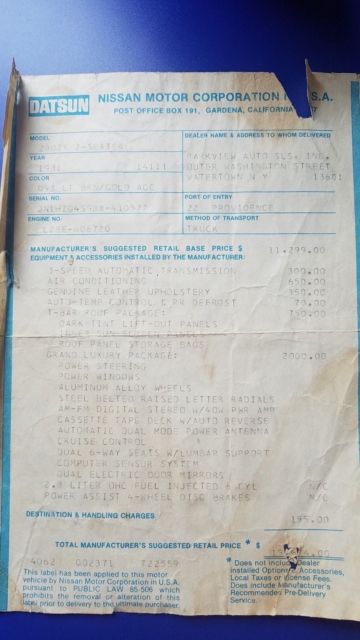 DATSUN
NISSAN MOTOR CORPORATION IN U.S.A.
POST OFFICE BOX 191, GARDENA, CALIFORNIA
MODEL
DEALER NAME & ADDRESS TO WHOM DELIVERED
YEAR
1981 14111
PARKVIEW AUTO SLS. INC.
OUTER WASHINGTON STREET
WATERTOWN N Y 13601
COLOR
LT BRN/GOLD ACC
SERIAL NO.
PORT OF ENTRY
22 PROVIDENCE
ENGINE NO.
L28E-
METHOD OF TRANSPORT
TRUCK
MANUFACTURER'S SUGGESTED RETAIL BASE PRICE $ 11,299.00
EQUIPMENT & ACCESSORIES INSTALLED BY THE MANUFACTURER:
3-SPEED AUTOMATIC TRANSMISSION 300.00
AIR CONDITIONING 650.00
GENUINE LEATHER UPHOLSTERY 350.00
AUTO TEMP CONTROL & RR DEFROST 70.00
T-BAR ROOF PACKAGE: 750.00
DARK-TINT LIFT-OUT PANELS
ROOF PANEL STORAGE BAGS
GRAND LUXURY PACKAGE: 2000.00
POWER STEERING
POWER WINDOWS
ALUMINUM ALLOY WHEELS
STEEL BELTED RAISED LETTER RADIALS
AM-FM DIGITAL STEREO W/40W PWR AMP
CASSETTE TAPE DECK W/AUTO REVERSE
AUTOMATIC DUAL MODE POWER ANTENNA
CRUISE CONTROL
DUAL 6-WAY SEATS W/LUMBAR SUPPORT
COMPUTER SENSOR SYSTEM
DUAL ELECTRIC DOOR MIRRORS
2.8 LITER OHC FUEL INJECTED 6 CYL N/C
POWER ASSIST 4-WHEEL DISC BRAKES N/C
DESTINATION & HANDLING CHARGES 195.00
TOTAL MANUFACTURER'S SUGGESTED RETAIL PRICE * $
4062 00237L T22559
This label has been applied to this motor
vehicle by Nissan Motor Corporation in U.S.A.
pursuant to PUBLIC LAW 85-506 which
prohibits the removal or alteration of this
label prior to delivery to the ultimate purchaser.
* Does not include Dealer
Installed Options & Accessories,
Local Taxes or License Fees.
Does include Manufacturer's
Recommended Pre-Delivery
Service.